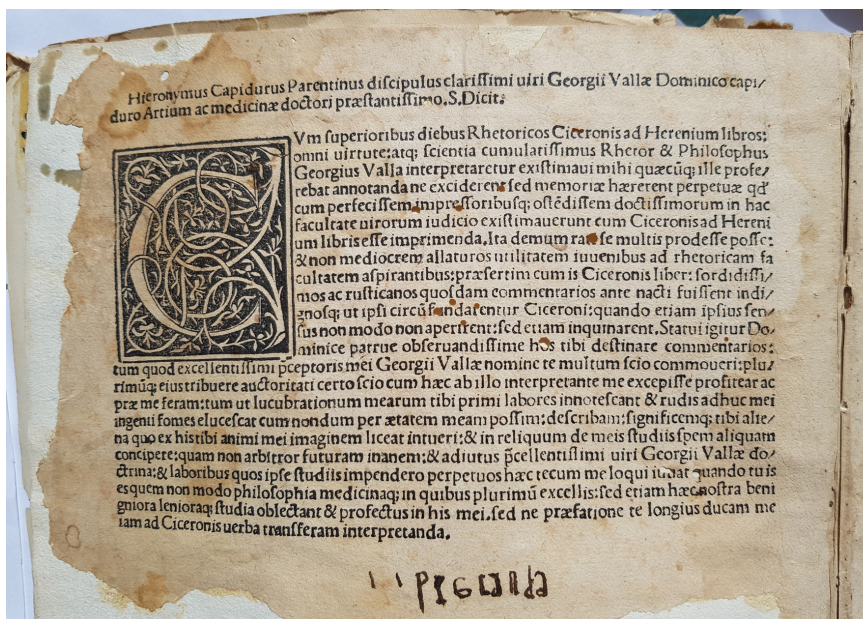 Hieronymus Capidurus Parentinus discipulus clarissimi uiri Georgii Vallæ Dominico capi/
duro Artium ac medicinæ doctori præstantissimo.S.Dicit.
CVm superioribus diebus Rhetoricos Ciceronis ad Herenium libros:
omni uirtute:atq; scientia cumulatissimus Rhetor & Philosophus
Georgius Valla interpretaretur existimaui mihi quæcūq; ille profe/
rebat annotanda ne exciderent sed memoriæ hærerent perpetuæ qd'
cum perfecissem impressoribusq; ostēdissem doctissimorum in hac
facultate uirorum iudicio existimauerunt cum Ciceronis ad Hereni
um libris esse imprimenda.Ita demum rati se multis prodesse posse:
& non mediocrem allaturos utilitatem iuuenibus ad rhetoricam fa
cultatem aspirantibus:præsertim cum is Ciceronis liber: sordidissi/
mos ac rusticanos quosdam commentarios ante nacti fuissent indi/
gnosq; ut ipsi circūfundarentur Ciceroni:quando etiam ipsius sen/
sus non modo non aperirent:sed etiam inquinarent.Statui igitur Do/
minice patrue obseruandissime hos tibi destinare commentarios:
tum quod excellentissimi p̄ceptoris mei Georgii Vallæ nomine te multum scio commoueri:plu/
rimūq; eius tribuere auctoritati certo scio cum hæc ab illo interpretante me excepisse profitear ac
præ me feram:tum ut lucubrationum mearum tibi primi labores innotescant & rudis adhuc mei
ingenti fomes elucescat cum nondum per ætatem meam possim:describam:significemq; tibi alie/
na quo ex his tibi animi mei imaginem liceat intueri:& in reliquum de meis studiis spem aliquam
concipere:quam non arbitror futuram inanem:& adiutus p̄cellentissimi uiri Georgii Vallæ do/
ctrina:& laboribus quos ipse studiis impendero perpetuos hæc tecum me loqui iuuat quando tu is
es quem non modo philosophia medicinaq; in quibus plurimū excellis:sed etiam hæc nostra beni
gniora lenioraq; studia oblectant & profectus in his mei.sed ne præfatione te longius ducam me
iam ad Ciceronis uerba transferam interpretanda.